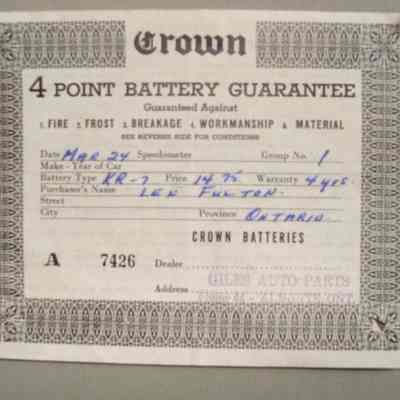 Crown
4 POINT BATTERY GUARANTEE
Guaranteed Against
1. FIRE 2. FROST 3. BREAKAGE 4. WORKMANSHIP & MATERIAL
SEE REVERSE SIDE FOR CONDITIONS
Date MAR 24 Speedometer Group No. 1
Make - Year of Car
Battery Type KR-7 Price 14.75 Warranty 4 yrs.
Purchaser's Name LEN FULTON
Street
City Province ONTARIO
CROWN BATTERIES
A 7426 Dealer
GILES AUTO PARTS
Address